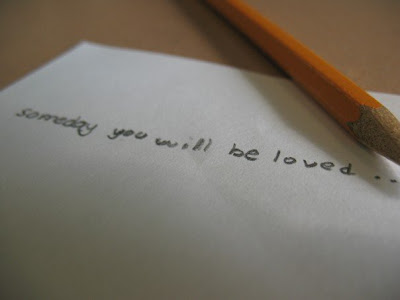 someday you will be loved ..